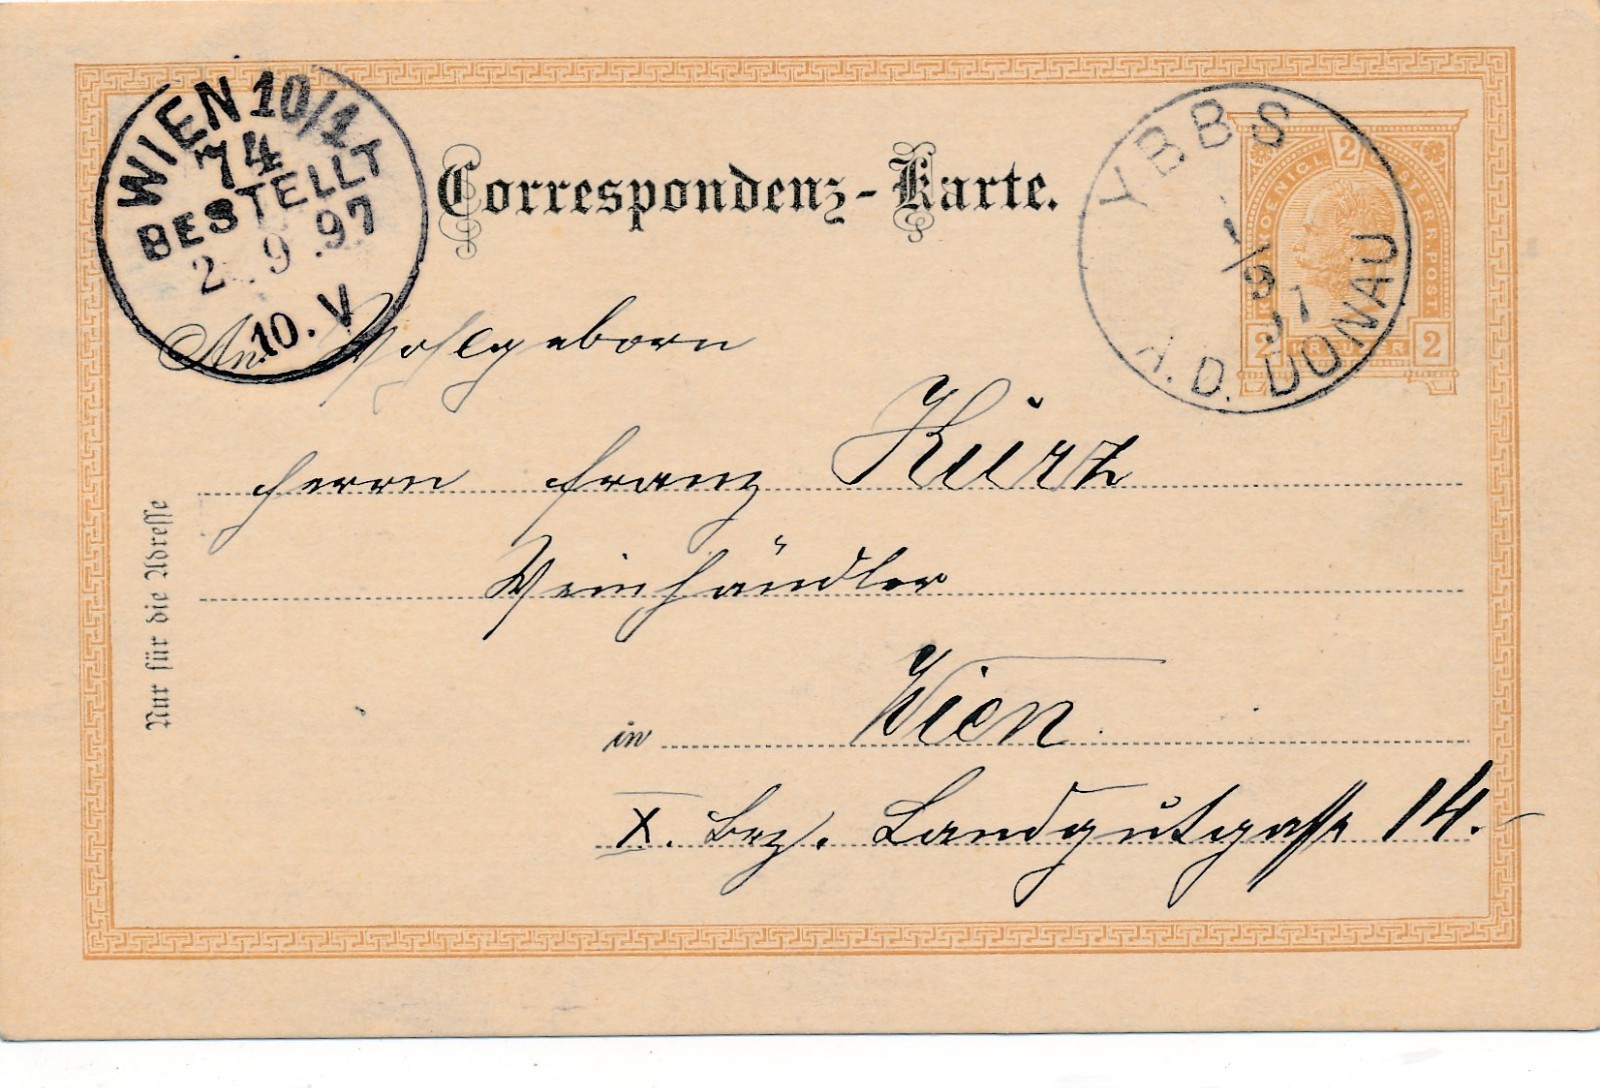 WIEN 10/1
74
BESTELLT
2 9 97
10. V
Correspondenz-Karte.
YBBS
1/9
97
A. D. DONAU
2
KOENIGL. OESTERR. POST.
2 KREUZER 2
An Wohlgeborn
Herrn Franz Kurz
Weinhändler
in Wien.
X. Bez. Landgutgasse 14.
Nur für die Adresse